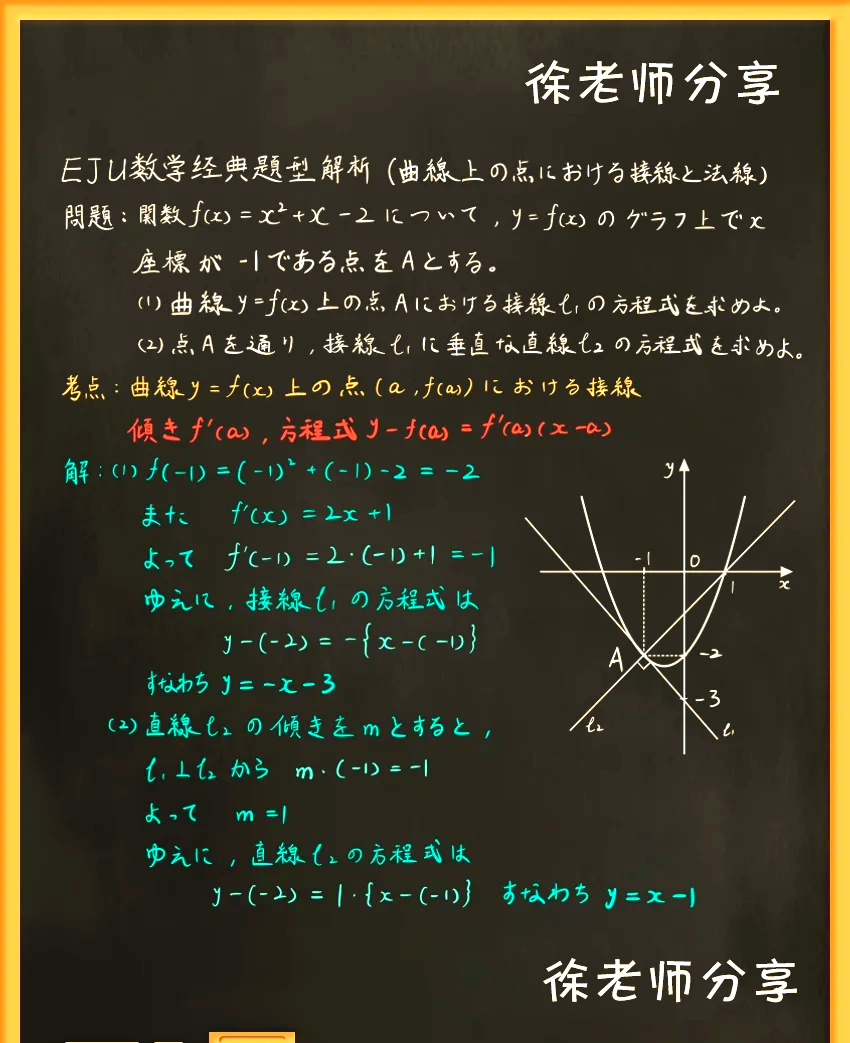 徐老师分享
EJU数学经典題型解析（曲線上の点における接線と法線）
問題：関数 f(x) = x² + x - 2 について，y = f(x) のグラフ上で x
座標が -1 である点を A とする。
(1) 曲線 y = f(x) 上の点 A における接線 ℓ₁ の方程式を求めよ。
(2) 点 A を通り，接線 ℓ₁ に垂直な直線 ℓ₂ の方程式を求めよ。
考点：曲線 y = f(x) 上の点 (a, f(a)) における接線
傾き f'(a)，方程式 y - f(a) = f'(a)(x - a)
解：(1) f(-1) = (-1)² + (-1) - 2 = -2
また f'(x) = 2x + 1
よって f'(-1) = 2·(-1) + 1 = -1
ゆえに，接線 ℓ₁ の方程式は
y - (-2) = -{x - (-1)}
すなわち y = -x - 3
(2) 直線 ℓ₂ の傾きを m とすると，
ℓ₁ ⊥ ℓ₂ から m·(-1) = -1
よって m = 1
ゆえに，直線 ℓ₂ の方程式は
y - (-2) = 1·{x - (-1)} すなわち y = x - 1
y
-1
0
1
x
A
-2
-3
ℓ₂
ℓ₁
徐老师分享